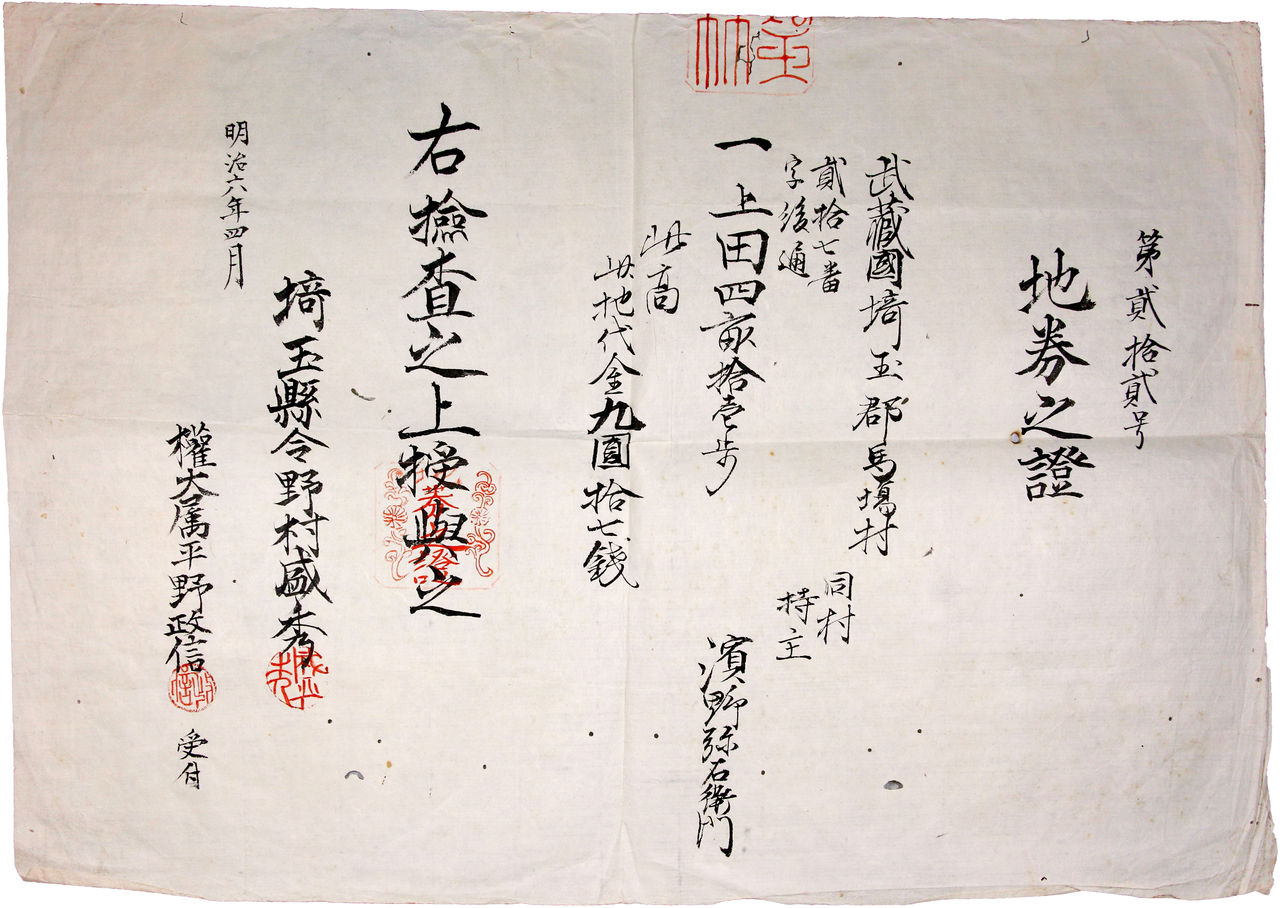 第貳拾貳号
地券之證
武藏國埼玉郡馬場村
貳拾七番
字後通
一上田四畝拾壱歩
同村
持主
濱野弥右衛門
此高
此地代金九圓拾七錢
右撿查之上授與之
地券之證
埼玉縣令野村盛秀
明治六年四月
權大属平野政信
受付